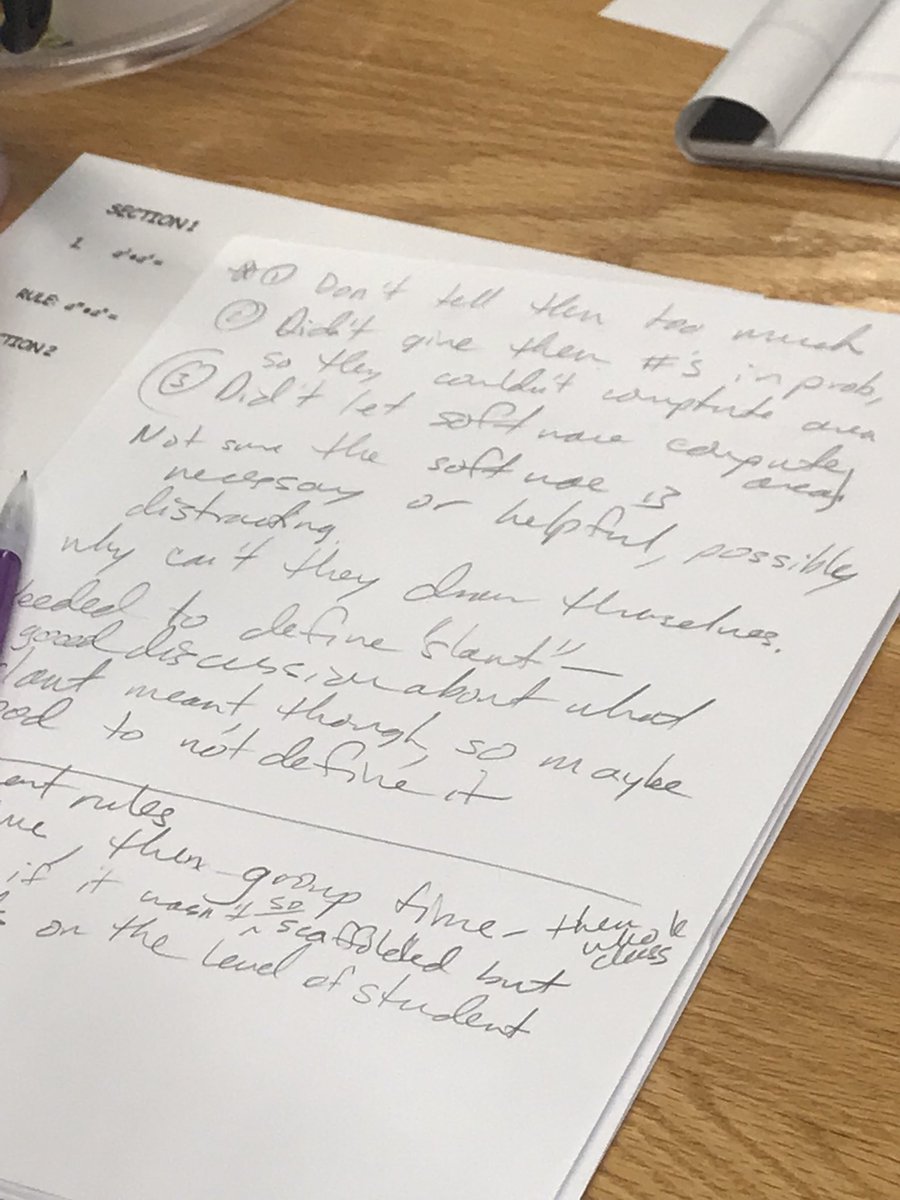 SECTION 1
1.
RULE:
TION 2
① Don't tell them too much
② Didn't give them #'s in prob,
so they couldn't comptute area
③ Didn't let software compute
area,
Not sure the software is
necessary or helpful, possibly
distracting.
why can't they draw themselves.
eeded to define "slant" —
good discussion about what
slant meant, though, so maybe
ood to not define it
ent rules
me, then group time – then
whole
class
if it wasn't so scaffolded but
s on the level of student